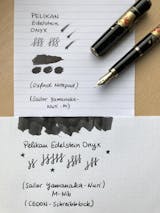 PELIKAN
Edelstein
ONYX
(Oxford Notepad)
(Sailor Yamanaka-
Nuri - M)
Pelikan Edelstein Onyx
(Sailor Yamanaka-Nuri)
M-Nib
(CEDON-Schreibblock)